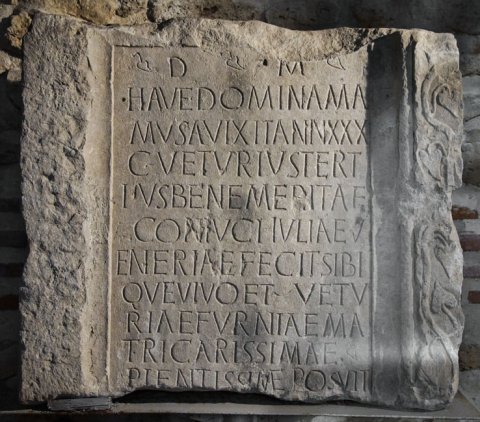 D M
HAVE DOMINA MA
MUSA VIXIT ANN XXX
C VETURIUS TERT
IUS BENE MERITAE
CONIUGI IULIAE V
ENERIAE FECIT SIBI
QUE VIVO ET VETU
RIAE FURNIAE MA
TRI CARISSIMAE
PIENTISSIME POSUIT